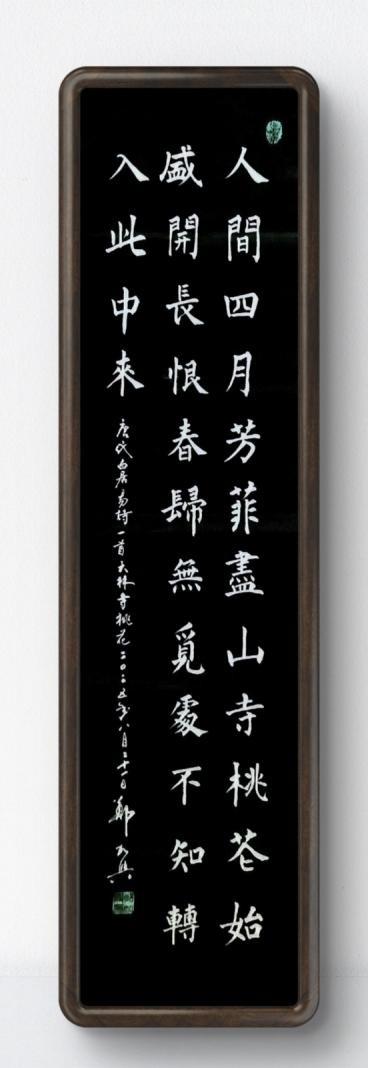 人間四月芳菲盡山寺桃花始
盛開長恨春歸無覓處不知轉
入此中來
唐代白居易詩一首大林寺桃花二〇二五年八月二十一日鄭